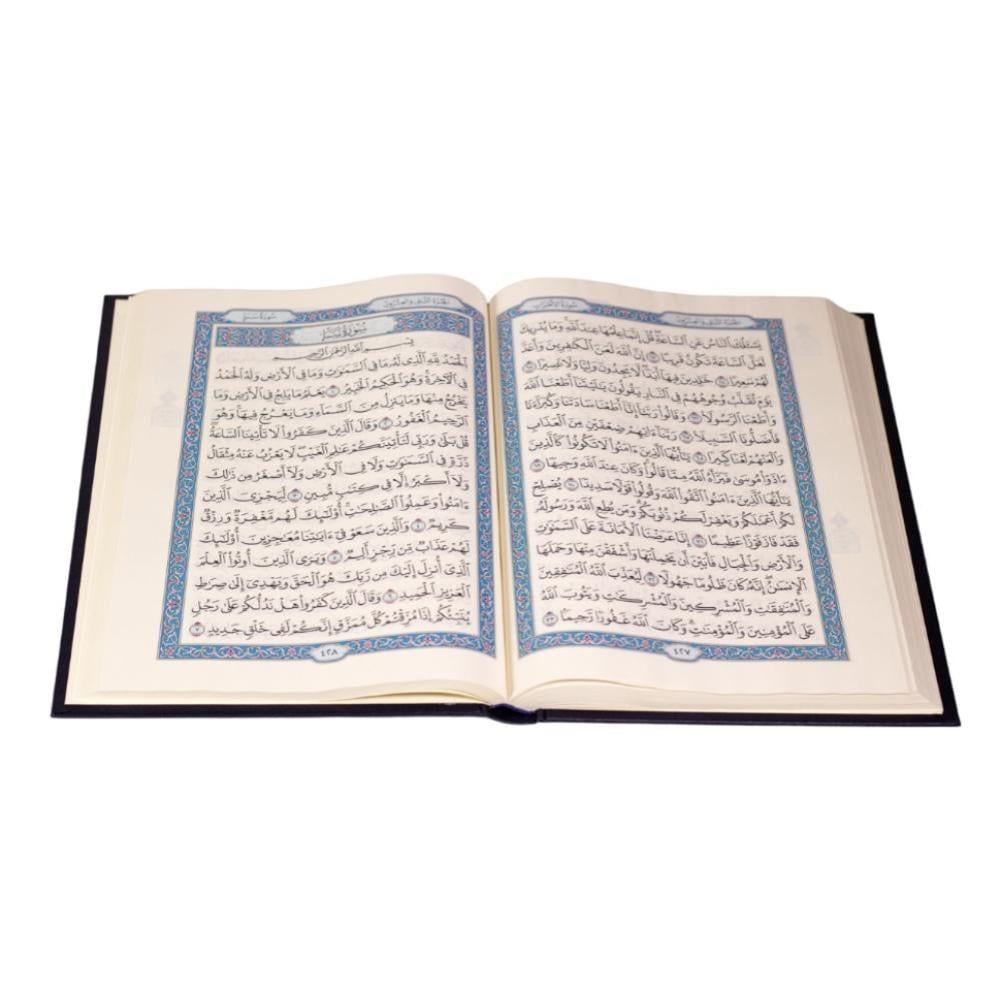 سورة الأحزاب
الجزء الثاني والعشرون
يَسْـَٔلُكَ ٱلنَّاسُ عَنِ ٱلسَّاعَةِ قُلْ إِنَّمَا عِلْمُهَا عِندَ ٱللَّهِ وَمَا يُدْرِيكَ
لَعَلَّ ٱلسَّاعَةَ تَكُونُ قَرِيبًا ٦٣ إِنَّ ٱللَّهَ لَعَنَ ٱلْكَٰفِرِينَ وَأَعَدَّ
لَهُمْ سَعِيرًا ٦٤ خَٰلِدِينَ فِيهَآ أَبَدًا لَّا يَجِدُونَ وَلِيًّا وَلَا نَصِيرًا ٦٥
يَوْمَ تُقَلَّبُ وُجُوهُهُمْ فِي ٱلنَّارِ يَقُولُونَ يَٰلَيْتَنَآ أَطَعْنَا ٱللَّهَ
وَأَطَعْنَا ٱلرَّسُولَا۠ ٦٦ وَقَالُوا۟ رَبَّنَآ إِنَّآ أَطَعْنَا سَادَتَنَا وَكُبَرَآءَنَا
فَأَضَلُّونَا ٱلسَّبِيلَا۠ ٦٧ رَبَّنَآ ءَاتِهِمْ ضِعْفَيْنِ مِنَ ٱلْعَذَابِ
وَٱلْعَنْهُمْ لَعْنًا كَبِيرًا ٦٨ يَٰٓأَيُّهَا ٱلَّذِينَ ءَامَنُوا۟ لَا تَكُونُوا۟ كَٱلَّذِينَ
ءَاذَوْا۟ مُوسَىٰ فَبَرَّأَهُ ٱللَّهُ مِمَّا قَالُوا۟ وَكَانَ عِندَ ٱللَّهِ وَجِيهًا ٦٩
يَٰٓأَيُّهَا ٱلَّذِينَ ءَامَنُوا۟ ٱتَّقُوا۟ ٱللَّهَ وَقُولُوا۟ قَوْلًا سَدِيدًا ٧٠ يُصْلِحْ
لَكُمْ أَعْمَٰلَكُمْ وَيَغْفِرْ لَكُمْ ذُنُوبَكُمْ وَمَن يُطِعِ ٱللَّهَ وَرَسُولَهُۥ
فَقَدْ فَازَ فَوْزًا عَظِيمًا ٧١ إِنَّا عَرَضْنَا ٱلْأَمَانَةَ عَلَى ٱلسَّمَٰوَٰتِ
وَٱلْأَرْضِ وَٱلْجِبَالِ فَأَبَيْنَ أَن يَحْمِلْنَهَا وَأَشْفَقْنَ مِنْهَا وَحَمَلَهَا
ٱلْإِنسَٰنُ إِنَّهُۥ كَانَ ظَلُومًا جَهُولًا ٧٢ لِّيُعَذِّبَ ٱللَّهُ ٱلْمُنَٰفِقِينَ
وَٱلْمُنَٰفِقَٰتِ وَٱلْمُشْرِكِينَ وَٱلْمُشْرِكَٰتِ وَيَتُوبَ ٱللَّهُ
عَلَى ٱلْمُؤْمِنِينَ وَٱلْمُؤْمِنَٰتِ وَكَانَ ٱللَّهُ غَفُورًا رَّحِيمًا ٧٣
٤٢٧
الجزء الثاني والعشرون
سورة سبإ
سورة سبإ
بِسْمِ ٱللَّهِ ٱلرَّحْمَٰنِ ٱلرَّحِيمِ
ٱلْحَمْدُ لِلَّهِ ٱلَّذِي لَهُۥ مَا فِي ٱلسَّمَٰوَٰتِ وَمَا فِي ٱلْأَرْضِ وَلَهُ ٱلْحَمْدُ
فِي ٱلْءَاخِرَةِ وَهُوَ ٱلْحَكِيمُ ٱلْخَبِيرُ ١ يَعْلَمُ مَا يَلِجُ فِي ٱلْأَرْضِ وَمَا
يَخْرُجُ مِنْهَا وَمَا يَنزِلُ مِنَ ٱلسَّمَآءِ وَمَا يَعْرُجُ فِيهَا وَهُوَ
ٱلرَّحِيمُ ٱلْغَفُورُ ٢ وَقَالَ ٱلَّذِينَ كَفَرُوا۟ لَا تَأْتِينَا ٱلسَّاعَةُ
قُلْ بَلَىٰ وَرَبِّي لَتَأْتِيَنَّكُمْ عَٰلِمِ ٱلْغَيْبِ لَا يَعْزُبُ عَنْهُ مِثْقَالُ
ذَرَّةٍ فِي ٱلسَّمَٰوَٰتِ وَلَا فِي ٱلْأَرْضِ وَلَآ أَصْغَرُ مِن ذَٰلِكَ
وَلَآ أَكْبَرُ إِلَّا فِي كِتَٰبٍ مُّبِينٍ ٣ لِّيَجْزِيَ ٱلَّذِينَ
ءَامَنُوا۟ وَعَمِلُوا۟ ٱلصَّٰلِحَٰتِ أُو۟لَٰٓئِكَ لَهُم مَّغْفِرَةٌ وَرِزْقٌ
كَرِيمٌ ٤ وَٱلَّذِينَ سَعَوْ فِيٓ ءَايَٰتِنَا مُعَٰجِزِينَ أُو۟لَٰٓئِكَ
لَهُمْ عَذَابٌ مِّن رِّجْزٍ أَلِيمٌ ٥ وَيَرَى ٱلَّذِينَ أُوتُوا۟ ٱلْعِلْمَ
ٱلَّذِيٓ أُنزِلَ إِلَيْكَ مِن رَّبِّكَ هُوَ ٱلْحَقَّ وَيَهْدِيٓ إِلَىٰ صِرَٰطِ
ٱلْعَزِيزِ ٱلْحَمِيدِ ٦ وَقَالَ ٱلَّذِينَ كَفَرُوا۟ هَلْ نَدُلُّكُمْ عَلَىٰ رَجُلٍ
يُنَبِّئُكُمْ إِذَا مُزِّقْتُمْ كُلَّ مُمَزَّقٍ إِنَّكُمْ لَفِي خَلْقٍ جَدِيدٍ ٧
٤٢٨